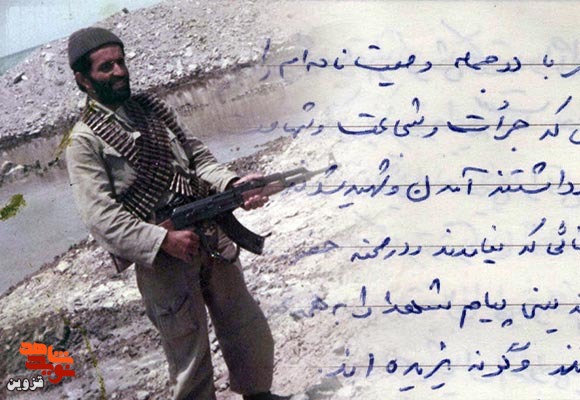 با دو جمله وصیت نامه ام را
که جرأت و شجاعت و شهامت
داشتند آمدن و شهید شدند
که نیامدند و در صحنه
یعنی پیام شهدا را به
وگرنه یزیدی اند
نوید شاهد
قزوین